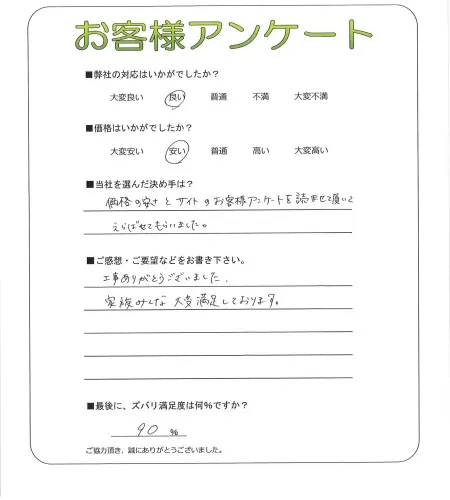 お客様アンケート
■弊社の対応はいかがでしたか?
大変良い 良い 普通 不満 大変不満
■価格はいかがでしたか?
大変安い 安い 普通 高い 大変高い
■当社を選んだ決め手は?
価格の安さとサイトのお客様アンケートを読ませて頂いて
えらばせてもらいました。
■ご感想・ご要望などをお書き下さい。
工事ありがとうございました。
家族みんな大変満足しております。
■最後に、ズバリ満足度は何%ですか?
90 %
ご協力頂き、誠にありがとうございました。